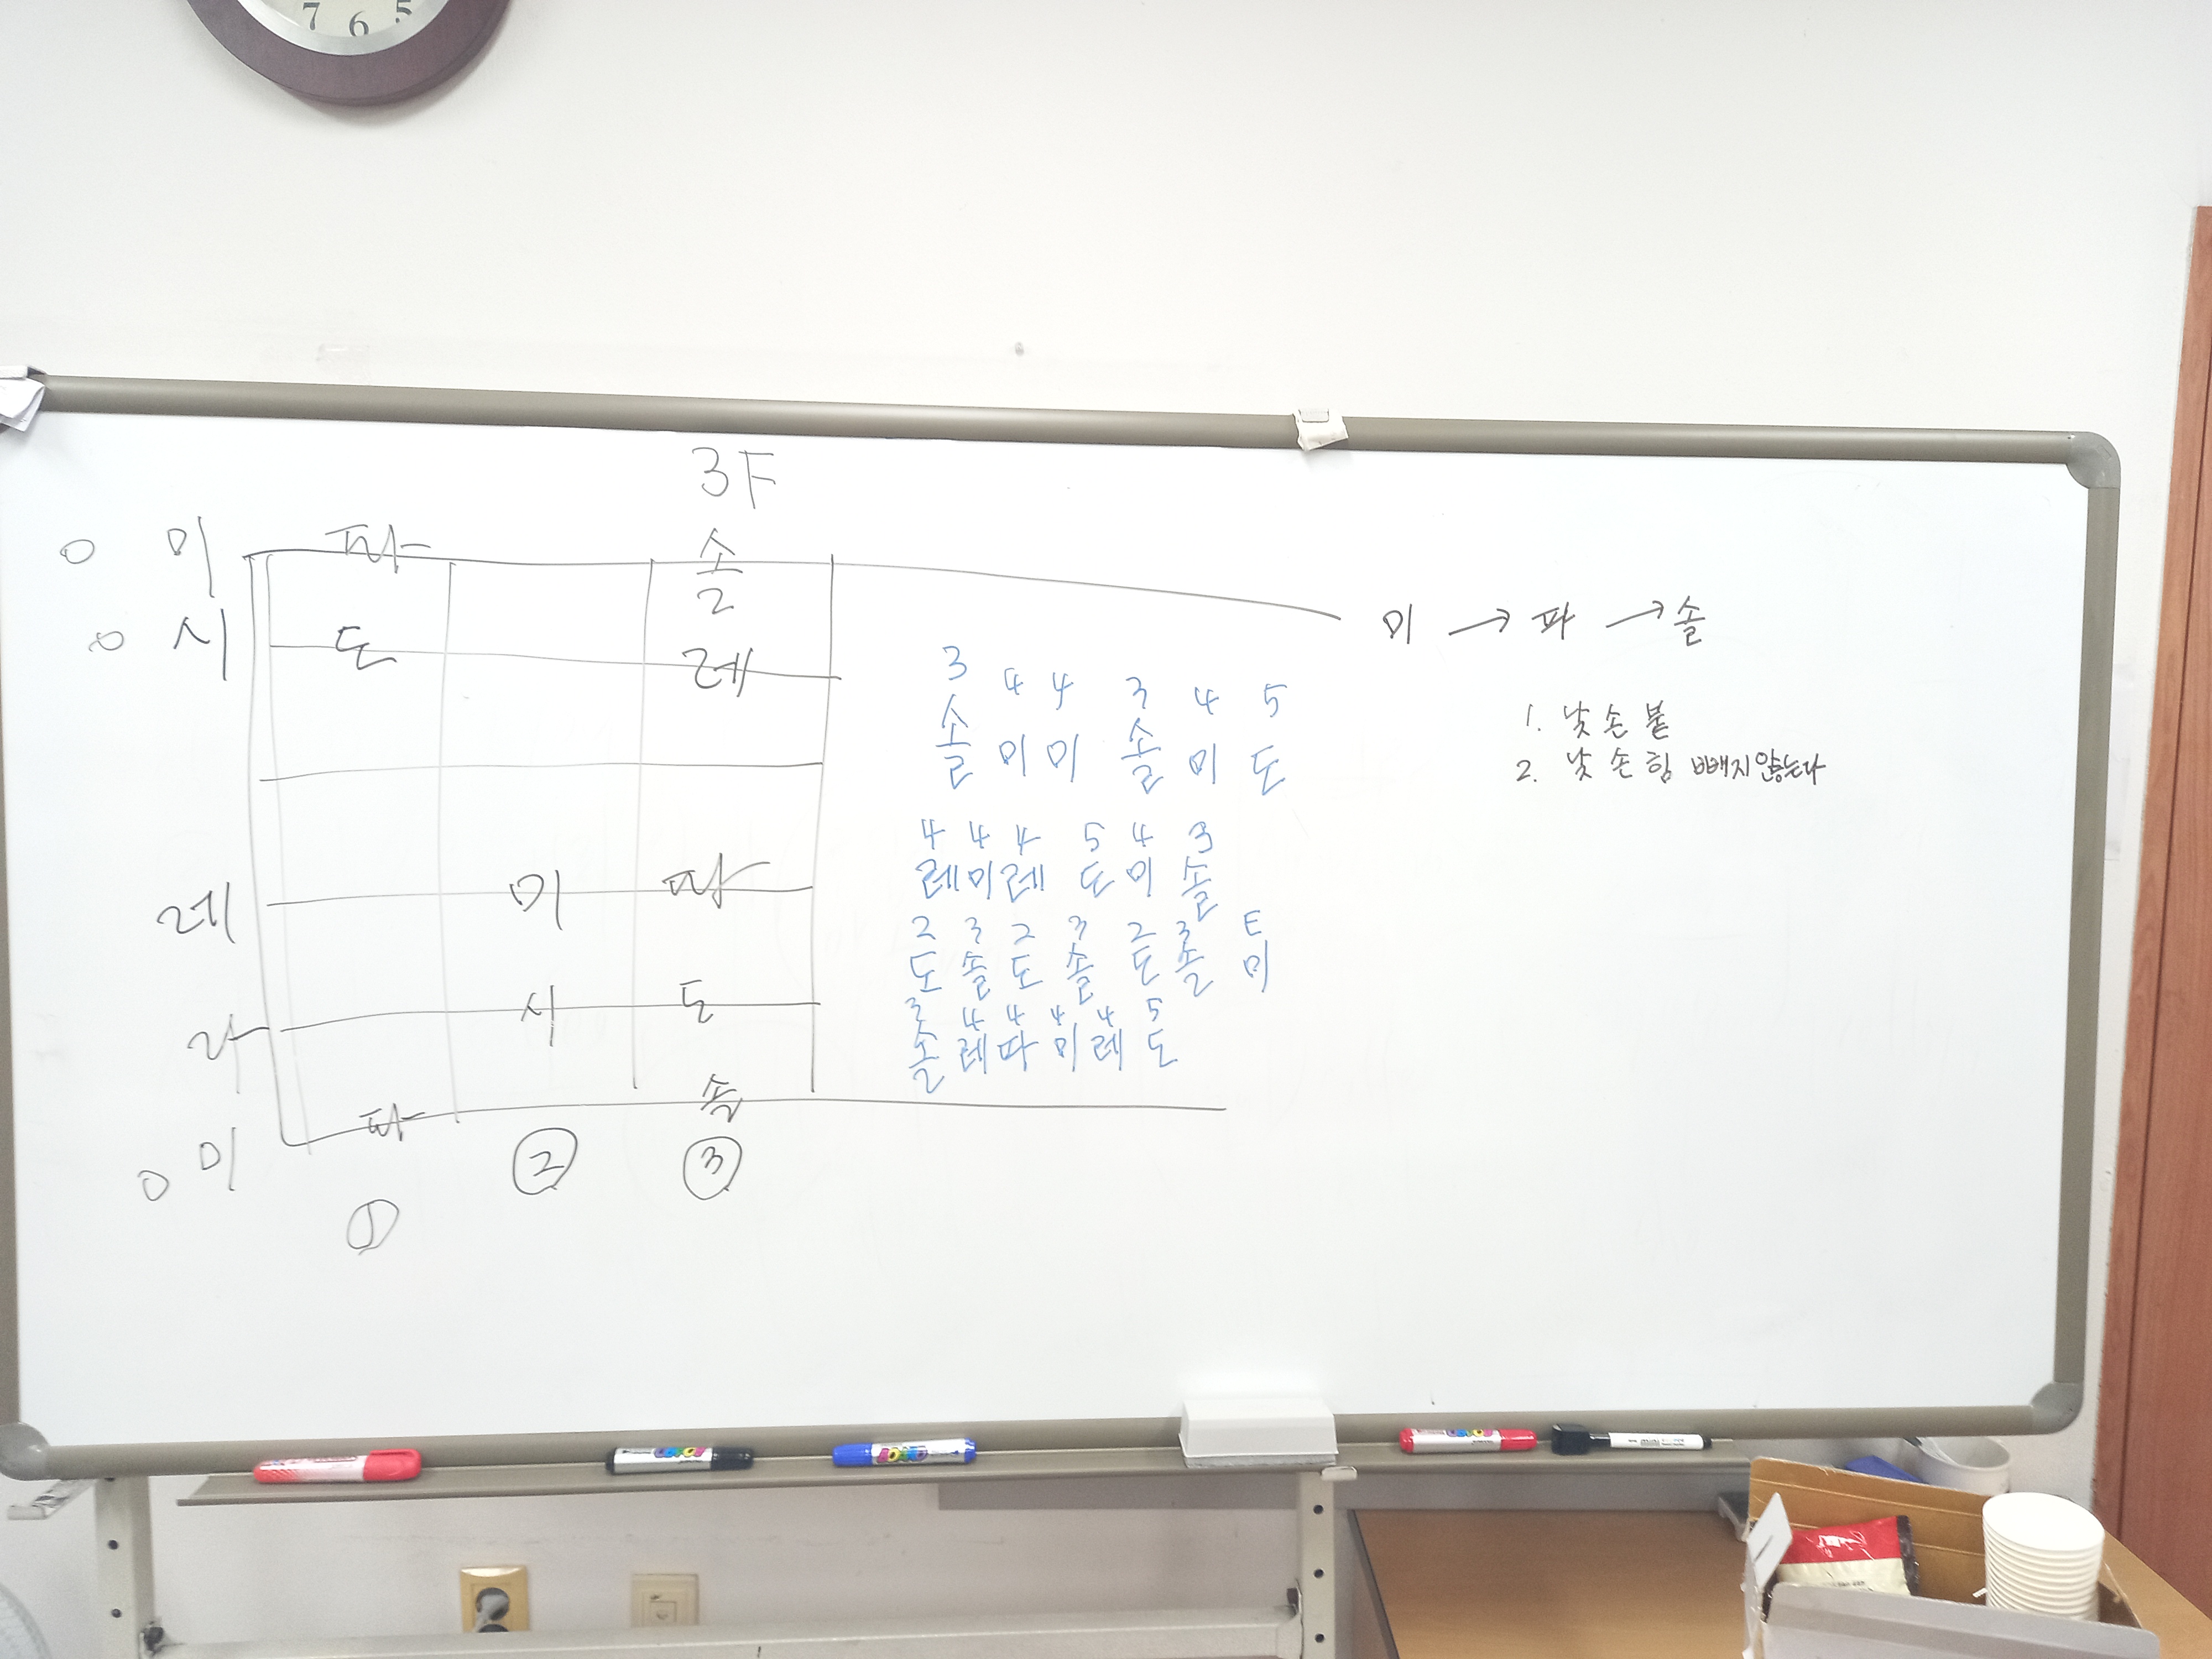 7 6 5
3F
0 미 파 솔
0 시 도 레
레 미 파
라 시 도
0 미 파 솔
① ② ③
3 4 4 3 4 5
솔 미 미 솔 미 도
4 4 4 5 4 3
레 미 레 도 미 솔
2 3 2 3 2 3 E
도 솔 도 솔 도 솔 미
3 4 4 4 4 5
솔 레 파 미 레 도
미 → 파 → 솔
1. 낮 손 붙
2. 낮 손 힘 빼지않는다